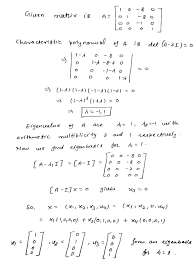 Given matrix is A = [1 0 -8 0
0 1 -8 0
0 0 -1 0
0 0 0 1]
Characteristic polynomial of A is det(A-λI)=0
⇒ |1-λ 0 -8 0
0 1-λ -8 0
0 0 -1-λ 0
0 0 0 1-λ| = 0
⇒ (1-λ)(1-λ)(-1-λ)(1-λ) = 0
λ = -1, 1
Eigenvalue of A are λ = 1, λ = -1 with
arithmetic multiplicity 3 and 1 respectively.
Now we find eigenbasis for λ = 1.
[A-λI] = [A-I] = [0 0 -8 0
0 0 -8 0
0 0 -2 0
0 0 0 0]
[A-I]X = 0 gives x3 = 0
So, X = (x1, x2, x3, x4) = (x1, x2, 0, x4)
= x1(1,0,0,0) + x2(0,1,0,0) + x4(0,0,0,1)
form an eigenbasis
for